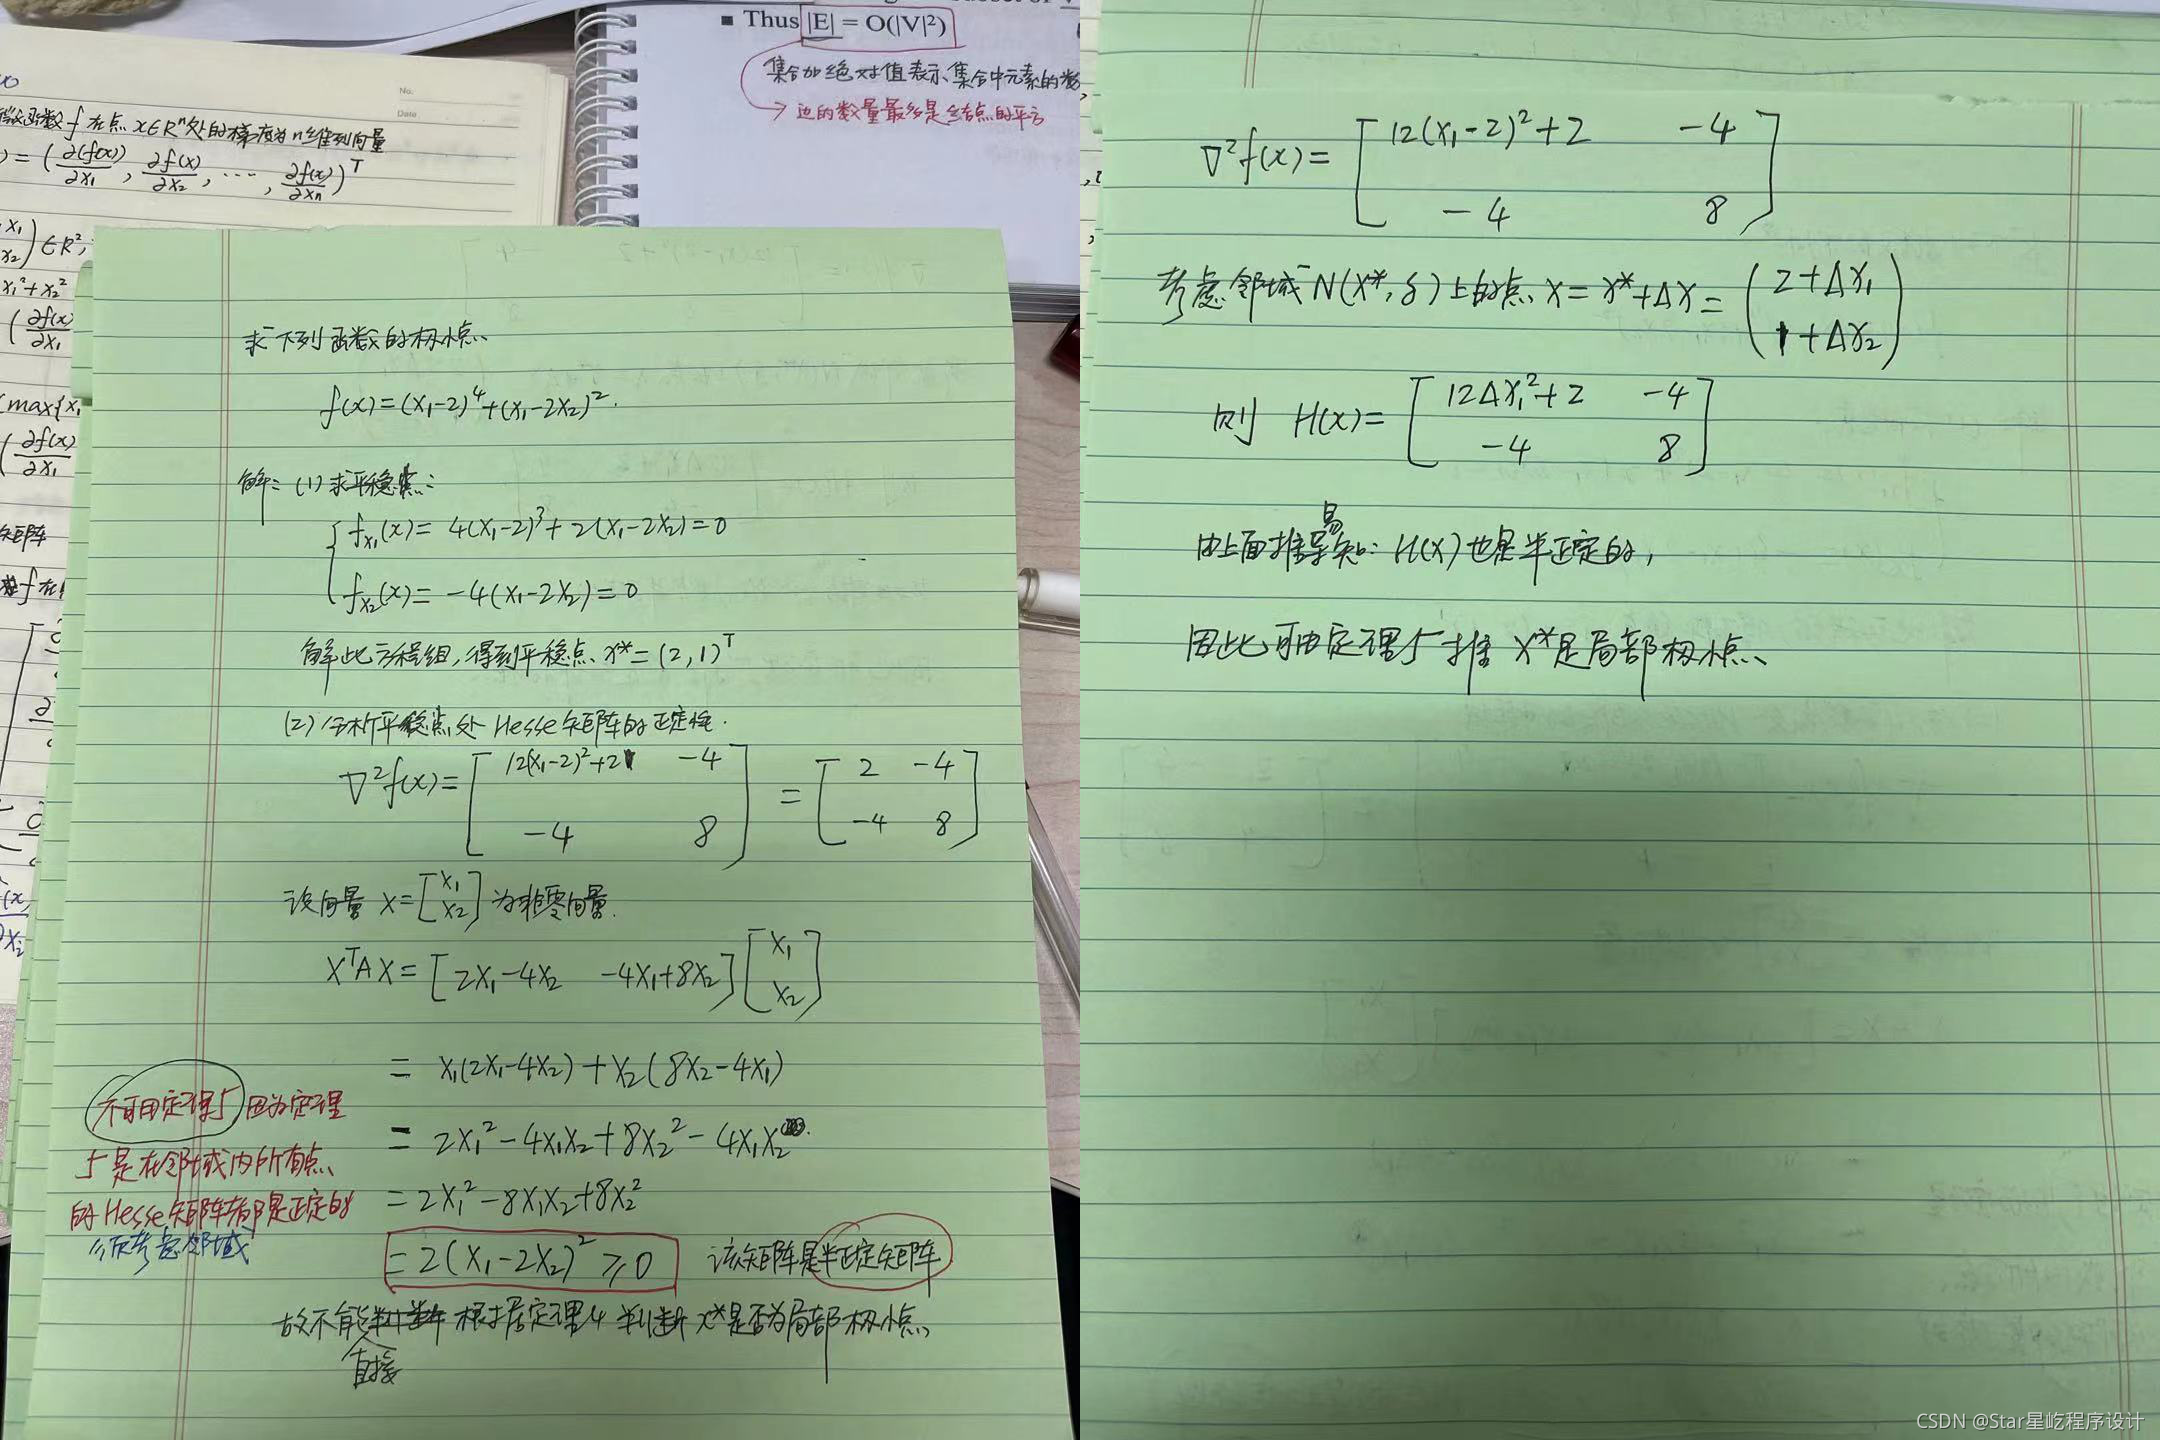 Thus |E| = O(|V|²)
集合加绝对值表示集合中元素的数
→ 边的数量最多是结点的平方
No.
Date
函数 f 在点 x∈Rⁿ处的梯度为n维列向量
) = (∂(f(x))/∂x₁, ∂f(x)/∂x₂, ⋯, ∂f(x)/∂xn)ᵀ
x₁
x₂) ∈R²,
x₁²+x₂²
(∂f(x)/∂x₁
(max{x₁
(∂f(x)/∂x₁
矩阵
求下列函数的极小点
f(x)=(x₁-2)⁴+(x₁-2x₂)².
解: (1) 求平稳点:
fx₁(x)= 4(x₁-2)³+2(x₁-2x₂)=0
fx₂(x)= -4(x₁-2x₂)=0
解此方程组,得到平稳点 x*=(2,1)ᵀ
(2) 分析平稳点处 Hesse 矩阵的正定性.
∇²f(x)= [12(x₁-2)²+2 -4; -4 8] = [2 -4; -4 8]
设向量 x=[x₁; x₂] 为非零向量.
XᵀAX= [2x₁-4x₂ -4x₁+8x₂][x₁; x₂]
= x₁(2x₁-4x₂)+x₂(8x₂-4x₁)
= 2x₁²-4x₁x₂+8x₂²-4x₁x₂
= 2x₁²-8x₁x₂+8x₂²
= 2(x₁-2x₂)²≥0 该矩阵是半正定矩阵
故不能直接根据定理4 判断 x*是否为局部极小点
不可由定理5 因为定理
5是在邻域内所有点
的Hesse矩阵都是正定的
须考虑邻域
∇²f(x)= [12(x₁-2)²+2 -4; -4 8]
考虑邻域 N(x*,δ)上的点 x=x*+Δx= (2+Δx₁; 1+Δx₂)
则 H(x)= [12Δx₁²+2 -4; -4 8]
由上面推导易知: H(x)也是半正定的,
因此可由定理5推 x*是局部极小点
CSDN @Star星屹程序设计